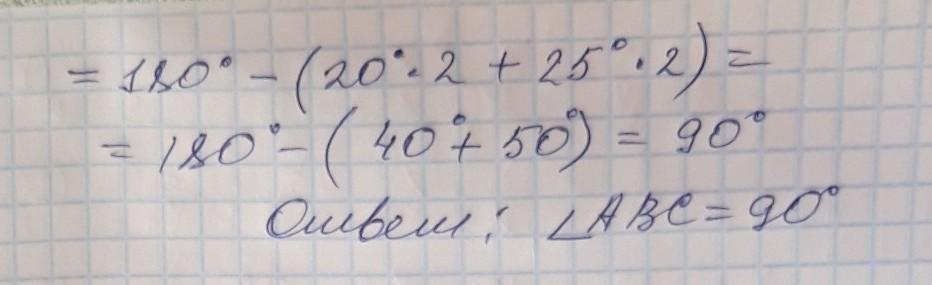 = 180° - (20°·2 + 25°·2) =
= 180° - (40° + 50°) = 90°
Ответ: ∠ABC = 90°